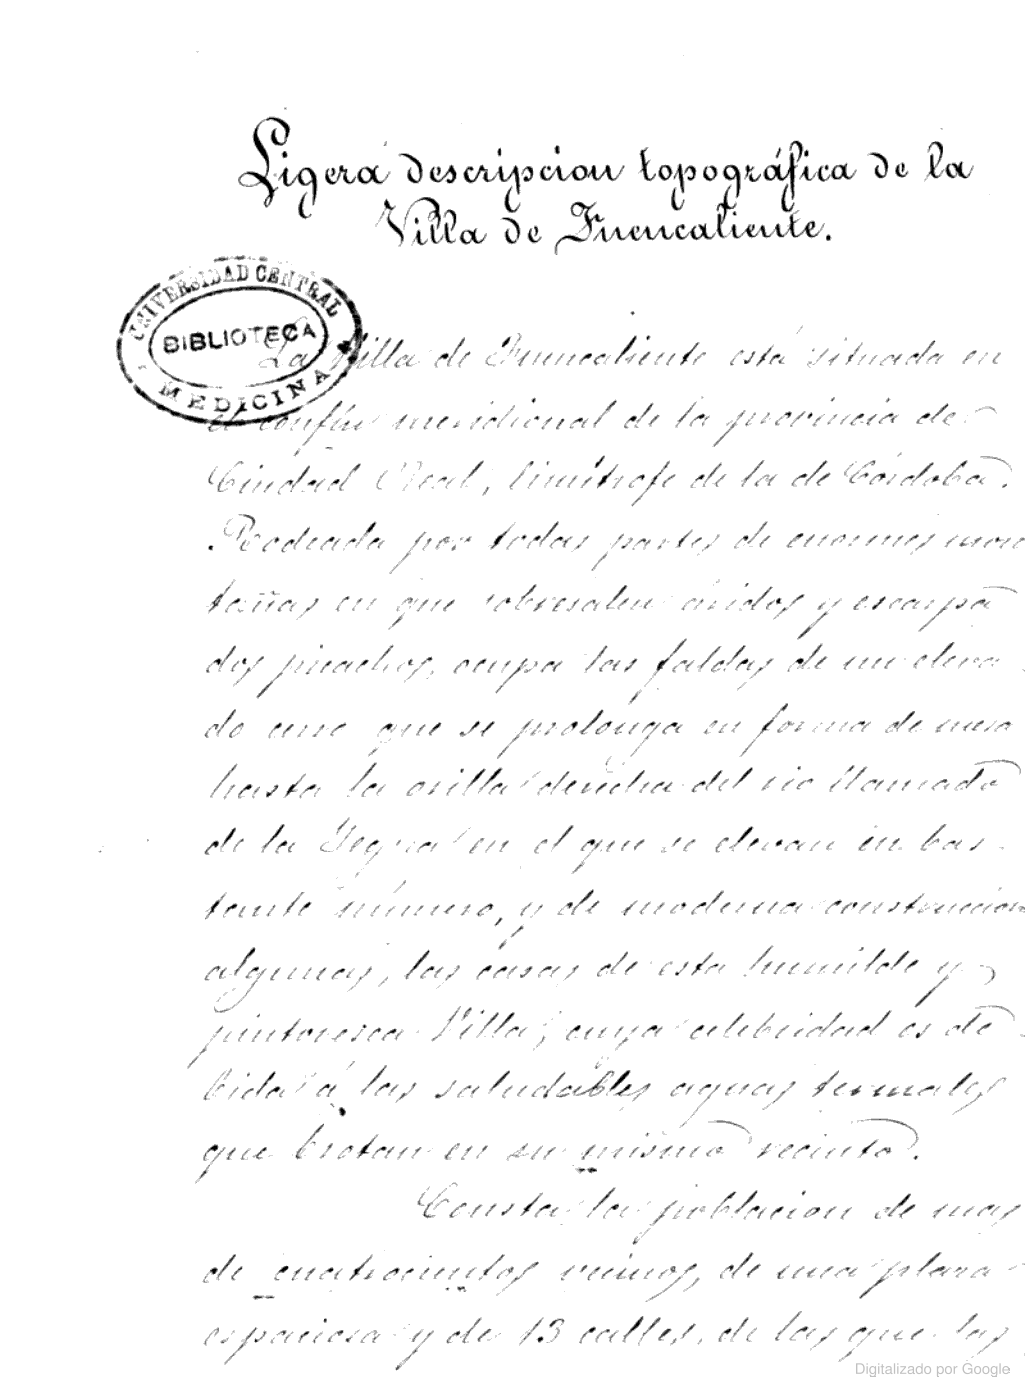 Ligera descripcion topográfica de la
Villa de Fuencaliente.
UNIVERSIDAD CENTRAL
BIBLIOTECA
MEDICINA
La Villa de Fuencaliente está situada en
el confin meridional de la provincia de
Ciudad Real, limítrofe de la de Córdoba.
Rodeada por todas partes de enormes mon
tañas en que sobresalen áridos y escarpa
dos picachos, ocupa las faldas de un eleva
do cerro que se prolonga en forma de mesa
hasta la orilla derecha del rio llamado
de la Yegua en el que se elevan en bas-
tante número, y de moderna construccion
algunas, las casas de esta humilde y
pintoresca Villa, cuya celebridad es de-
bida á las saludables aguas termales
que brotan en su mismo recinto.
Consta la poblacion de mas
de cuatrocientos vecinos, de una plaza
espaciosa y de 13 calles, de las que las
Digitalizado por Google